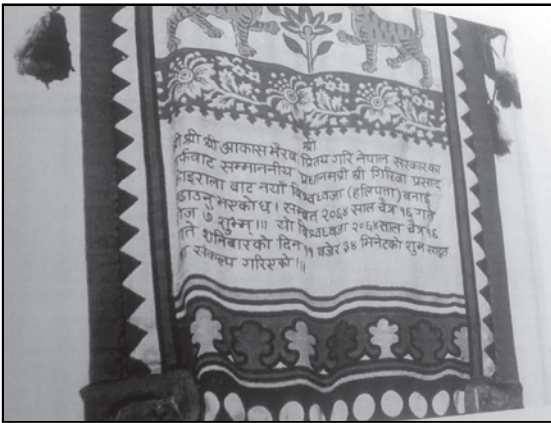 श्री
श्री श्री आकासभैरव प्रितय गरि नेपाल सरकारका
र्फवाट सम्माननीय प्रधानमन्त्री श्री गिरिजा प्रसाद
कोइराला बाट नयाँ विश्वध्वजा (हलिपता) बनाई
डाउनु भएकोछ। सम्बत २०६४ साल चैत्र १६ गते
रोज ७ शुभम्॥। यो विश्वध्वजा २०६४साल चैत्र १६
गते शनिबारको दिन ११ बजेर ३४ मिनेटको शुभ साइत
मा संकल्प गरिएको।॥